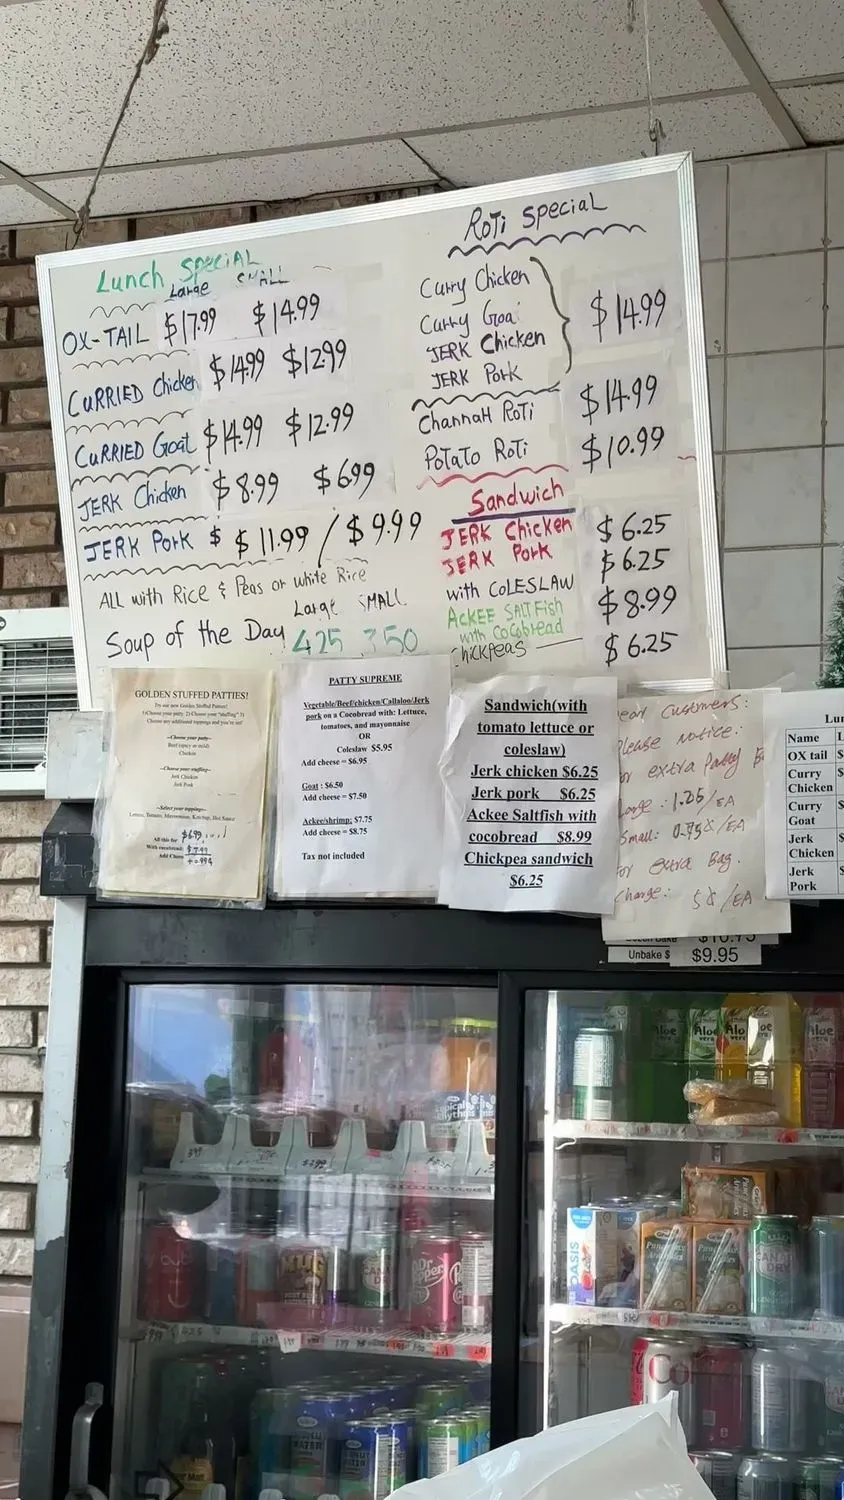 Lunch Special
Large SMALL
OX-TAIL $17.99 $14.99
CURRIED Chicken $14.99 $12.99
CURRIED Goat $14.99 $12.99
JERK Chicken $8.99 $6.99
JERK PORK $ $11.99 / $9.99
ALL with Rice & Peas or white Rice
Large SMALL
Soup of the Day 425 350
Roti Special
Curry Chicken
Curry Goa
JERK Chicken
JERK Pork
$14.99
ChannaH Roti $14.99
Potato Roti $10.99
Sandwich
JERK Chicken $6.25
JERK Pork $6.25
with COLESLAW
ACKEE SALTFish $8.99
with Cocobread
Chickpeas $6.25
GOLDEN STUFFED PATTIES!
Try our new Golden Stuffed Patties!
Choose any additional toppings and you're set!
--Choose your patty--
Beef (spicy or mild)
Chicken
--Choose your stuffing--
Jerk Chicken
Jerk Pork
--Select your toppings--
Lettuce, Tomato, Mayonnaise, Ketchup, Hot Sauce
All this for $6.99
With cocobread
Add Cheese
PATTY SUPREME
Vegetable/Beef/chicken/Callaloo/Jerk
pork on a Cocobread with: Lettuce,
tomatoes, and mayonnaise
OR
Coleslaw $5.95
Add cheese = $6.95
Goat : $6.50
Add cheese = $7.50
Ackee/shrimp: $7.75
Add cheese = $8.75
Tax not included
Sandwich(with
tomato lettuce or
coleslaw)
Jerk chicken $6.25
Jerk pork $6.25
Ackee Saltfish with
cocobread $8.99
Chickpea sandwich
$6.25
ear Customers:
lease notice:
or extra Patty B
arge : 1.25/EA
Small: /EA
or extra Bag.
Charge: 5¢/EA
Lu
Name L
OX tail $
Curry
Chicken
Curry
Goat
Jerk
Chicken
Jerk
Pork
$10.75
Unbake $ $9.95
Aloe vera
Aloe vera
Aloe
Aloe
OASIS
MUG
Dr Pepper
CANADA DRY
Co